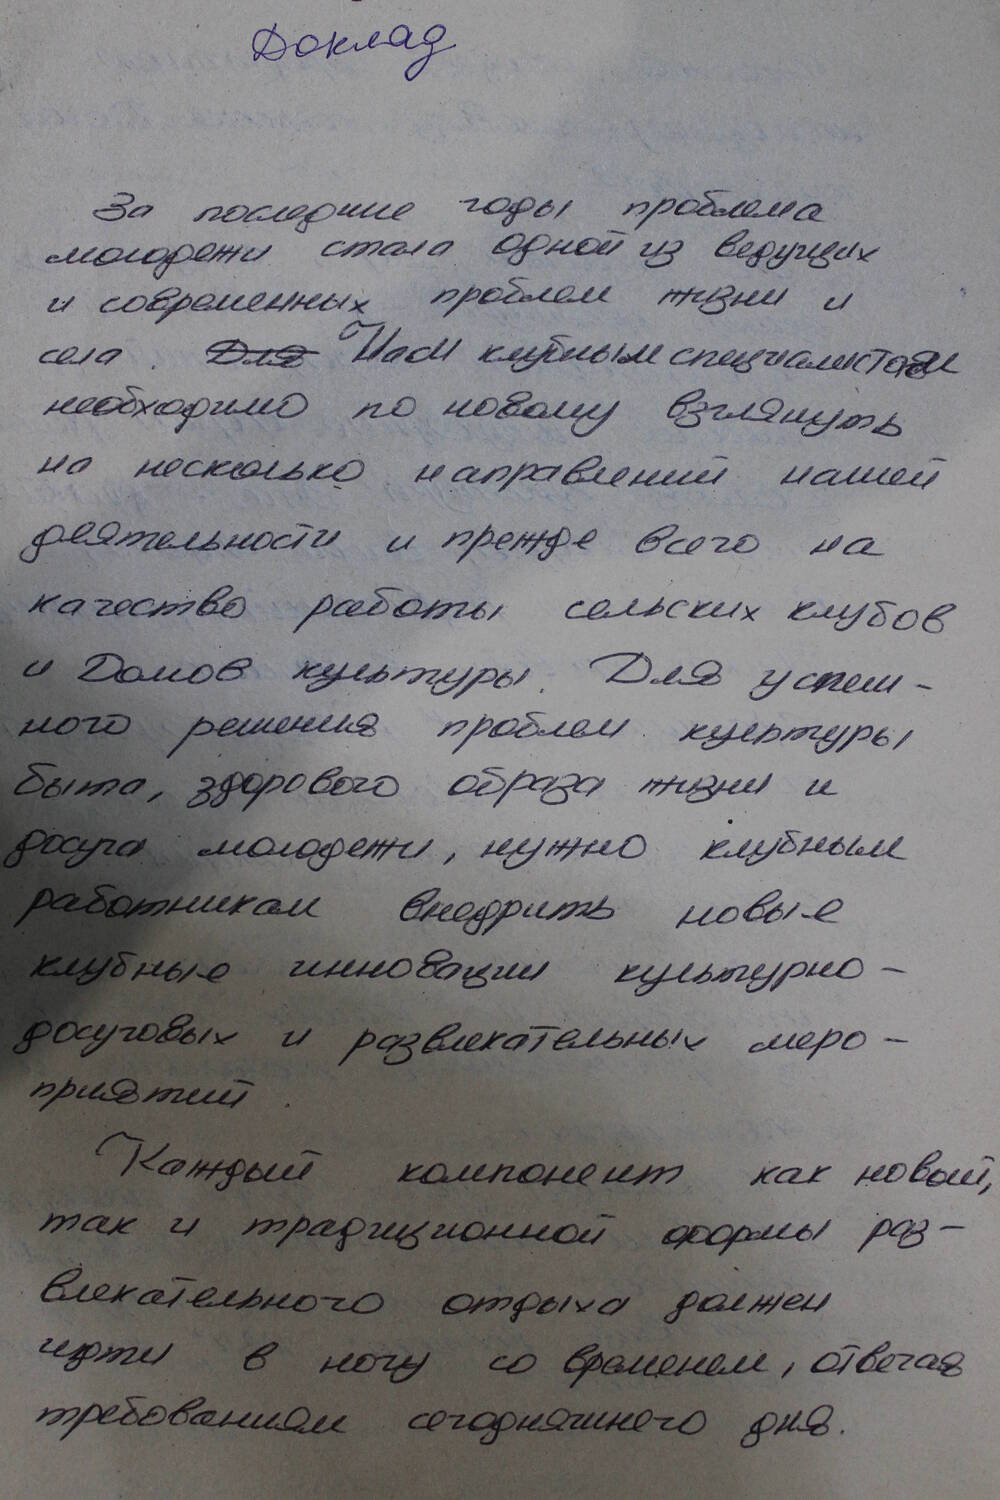 Доклад
За последние годы проблема
молодежи стала одной из ведущих
и современных проблем жизни и
села. Для Нам клубным специалистам
необходимо по новому взглянуть
на несколько направлений нашей
деятельности и прежде всего на
качество работы сельских клубов
и Домов культуры. Для успеш-
ного решения проблем культуры
быта, здорового образа жизни и
досуга молодежи, нужно клубным
работникам внедрить новые
клубные инновации культурно-
досуговых и развлекательных меро-
приятий.
Каждый компонент как новой,
так и традиционной формы раз-
влекательного отдыха должен
идти в ногу со временем, отвечая
требованиям сегодняшнего дня.